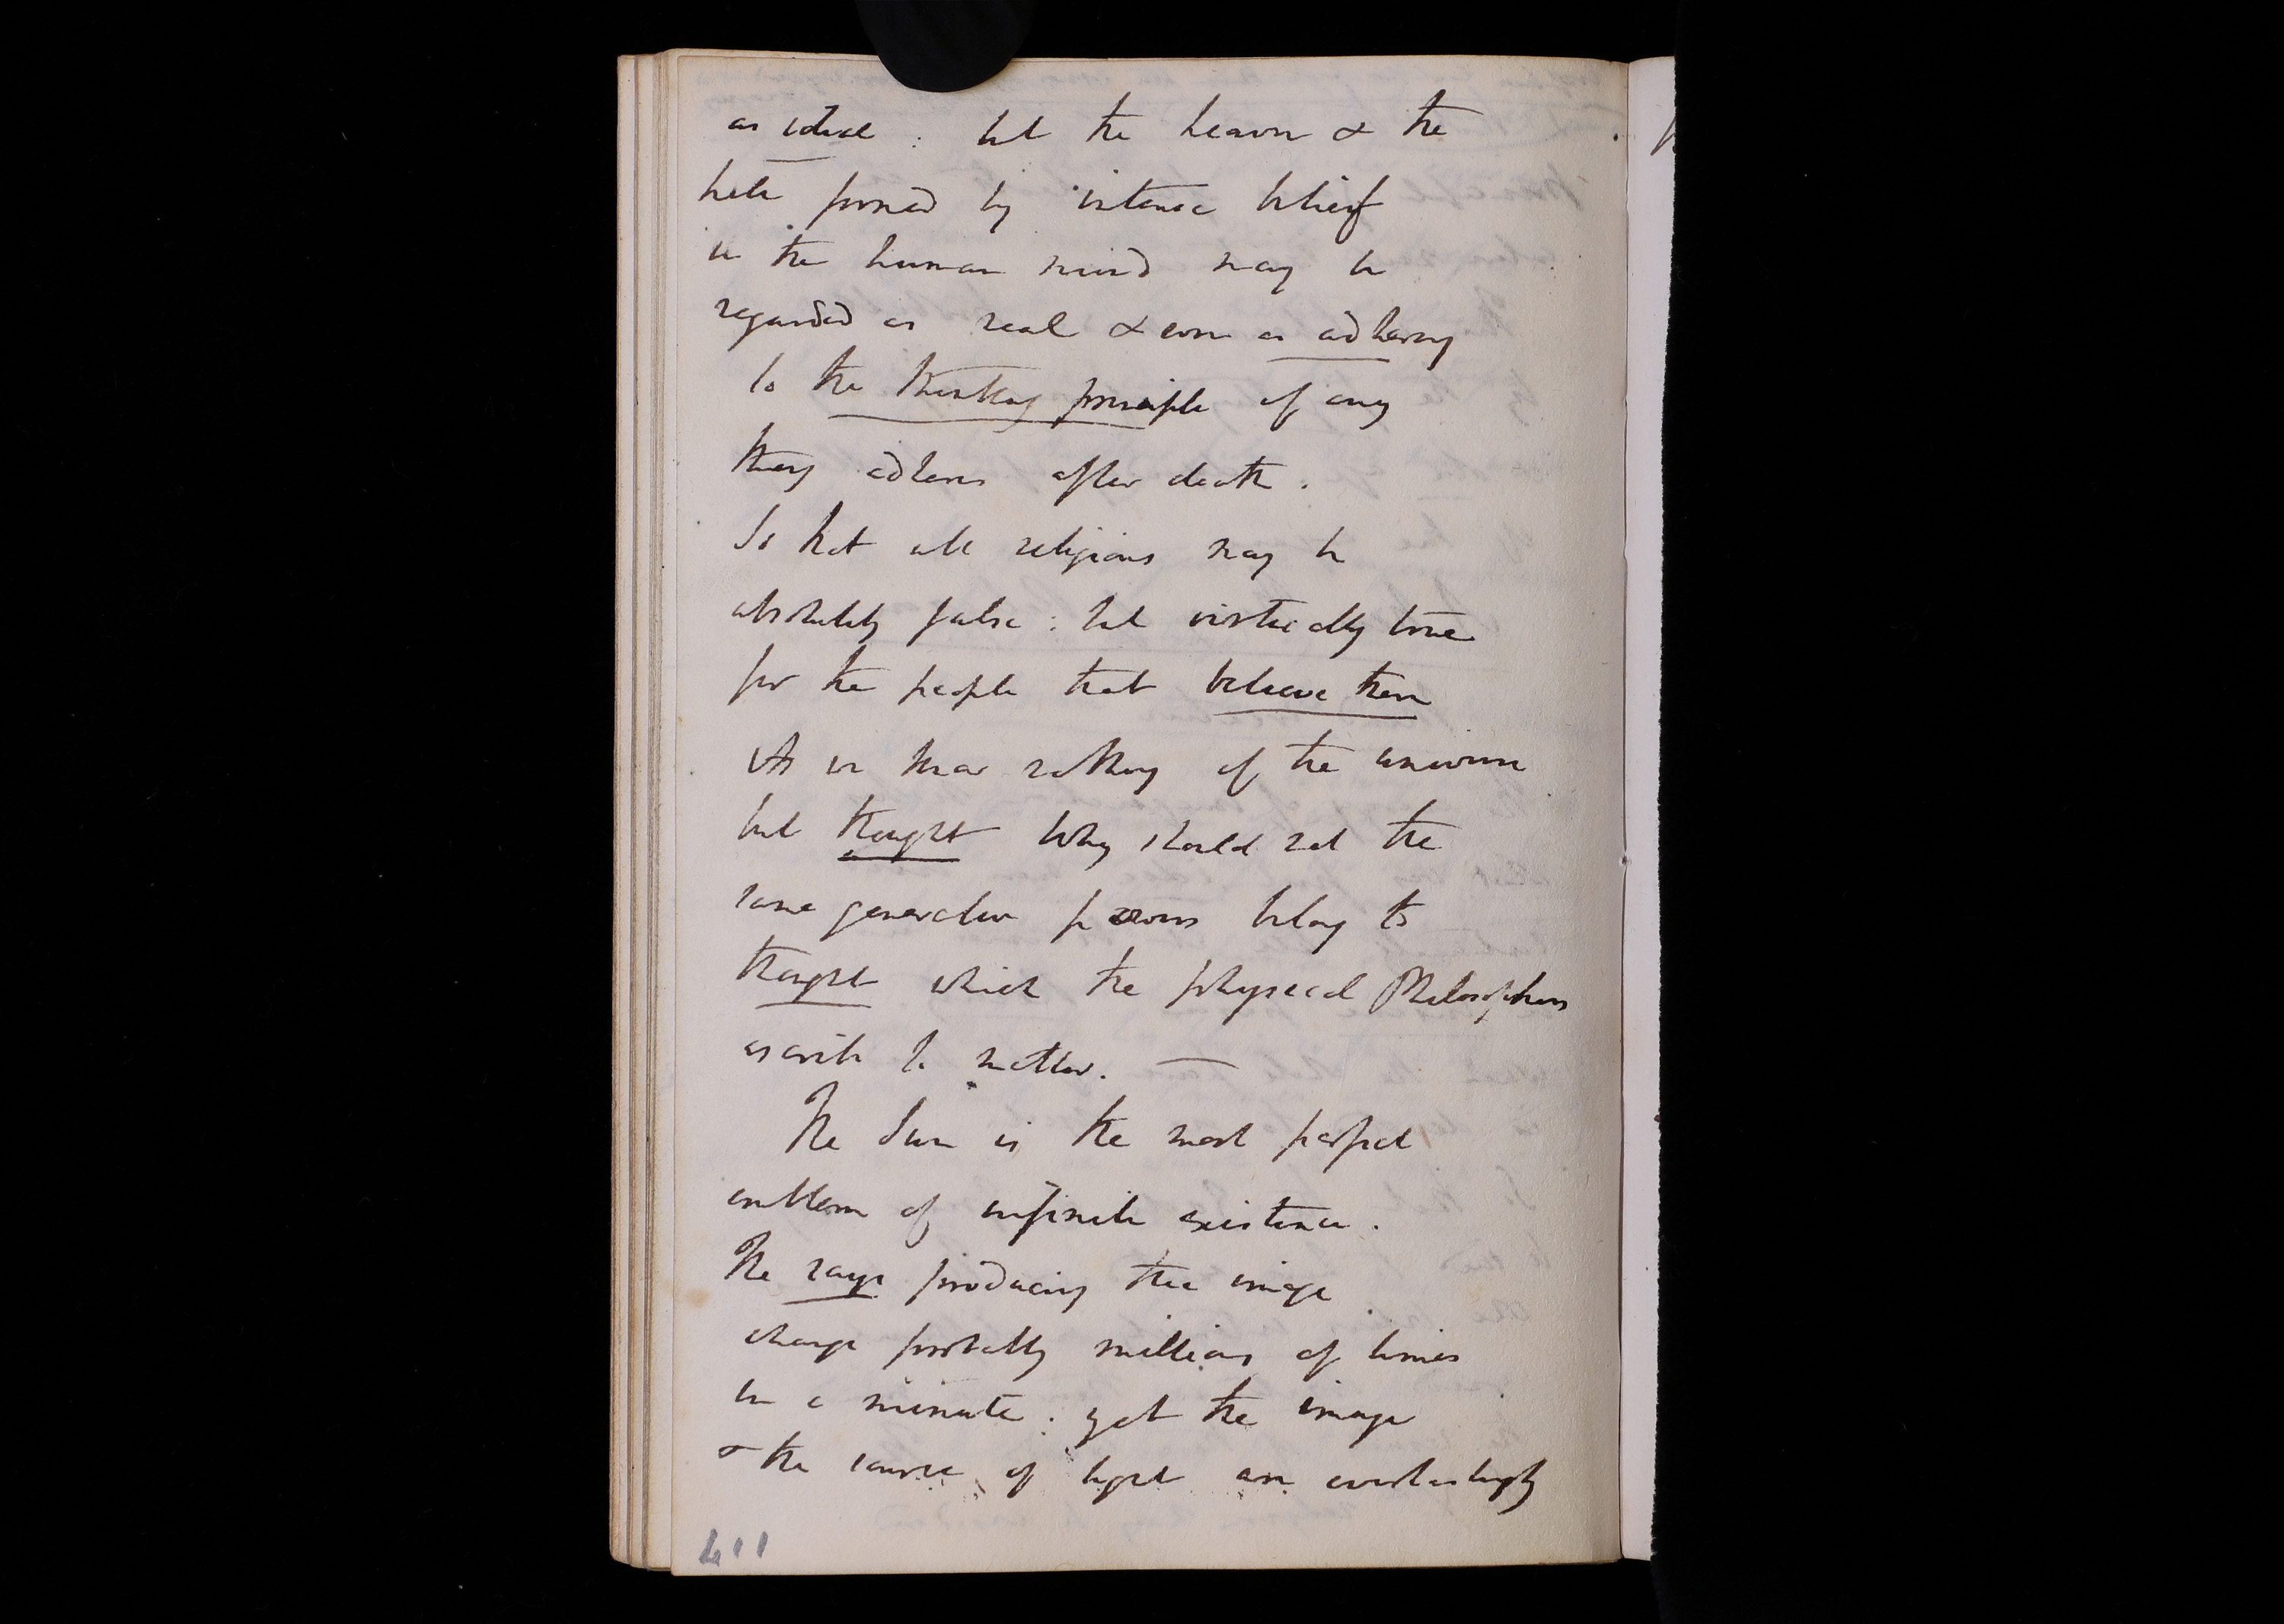 as ideal : but the heaven & the
hell formed by intense belief
in the human mind may be
regarded as real & even as adhering
to the thinking principle if any
thing adheres after death.
So that all religions may be
absolutely false : but virtually true
for the people that believe them
As we know nothing of the universe
but thought Why should not the
same generative powers belong to
thought which the physical Philosophers
ascribe to matter. —
The Sun is the most perfect
emblem of infinite existence.
The rays producing the image
change probably millions of times
in a minute : yet the image
& the source of light are everlastingly
411